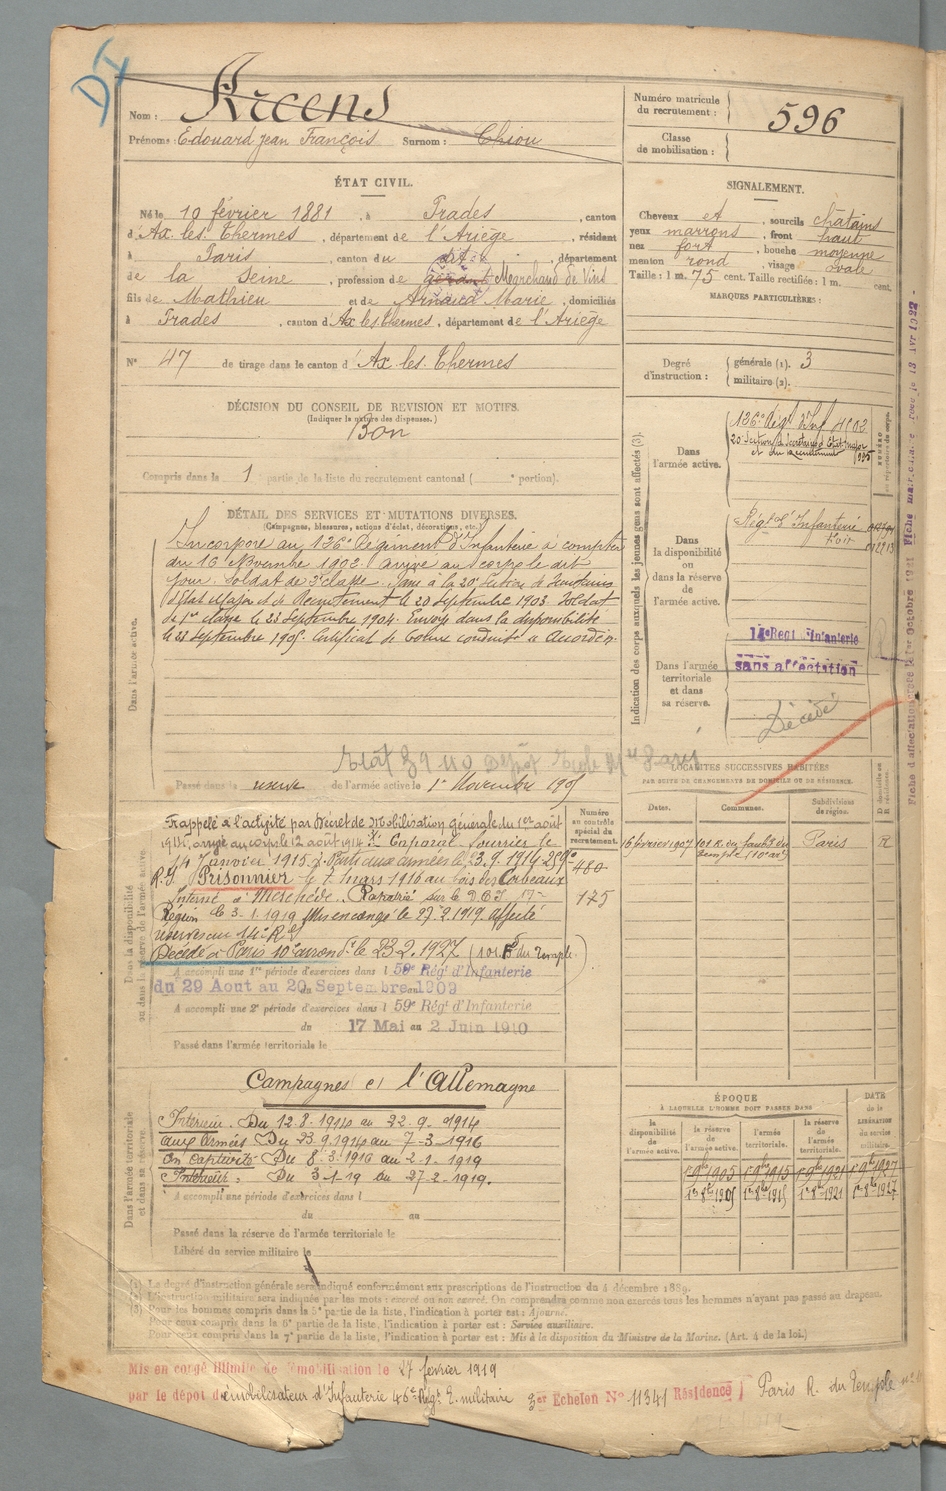 DI
Nom : Arcens
Prénoms : Edouard Jean François Surnom : Chiou
Numéro matricule du recrutement : 596
Classe de mobilisation :
ÉTAT CIVIL.
Né le 10 février 1881, à Prades, canton
d'Ax-les-Thermes, département de l'Ariège, résident
à Paris, canton du dit, département
de la Seine, profession de gérant Marchand de Vins
fils de Mathieu et de Arnaud Marie, domiciliés
à Prades, canton d'Ax les Thermes, département de l'Ariège
N° 47 de tirage dans le canton d'Ax-les-Thermes
SIGNALEMENT.
Cheveux et, sourcils châtains
yeux marrons, front haut
nez fort, bouche moyenne
menton rond, visage ovale
Taille : 1 m. 75 cent. Taille rectifiée : 1 m. cent.
MARQUES PARTICULIÈRES :
Degré d'instruction : générale (1). 3
militaire (2).
DÉCISION DU CONSEIL DE REVISION ET MOTIFS.
(Indiquer la nature des dispenses.)
Bon
Compris dans la 1 partie de la liste du recrutement cantonal ( ° portion).
DÉTAIL DES SERVICES ET MUTATIONS DIVERSES.
(Campagnes, blessures, actions d'éclat, décorations, etc.)
Dans l'armée active.
Incorporé au 126e Régiment d'Infanterie à compter
du 16 Novembre 1902 arrivé au corps le dit
jour. Soldat de 2e classe. Passé à la 20e Section de Secrétaires
d'Etat Major et de Recrutement le 20 septembre 1903. Soldat
de 1re classe le 23 Septembre 1904. Envoyé dans la disponibilité
le 23 septembre 1905. Certificat de bonne conduite "Accordé".
Passé dans la réserve de l'armée active le 1er Novembre 1905
Indication des corps auxquels les jeunes gens sont affectés (3).
Dans l'armée active.
126e Régt d'Inf
20e Section de Secrétaires d'Etat major
et du recrutement
Dans la disponibilité ou dans la réserve de l'armée active.
Régt d'Infanterie
Dans l'armée territoriale et dans sa réserve.
14e Regt d'Infanterie
sans affectation
Décédé
LOCALITÉS SUCCESSIVES HABITÉES
PAR SUITE DE CHANGEMENTS DE DOMICILE OU DE RÉSIDENCE.
Dates. Communes. Subdivisions de région. D domicile ou R résidence.
16 février 1907 101 R. du Faubg du Temple (10e arr) Paris R
Dans la disponibilité ou dans la réserve de l'armée active.
Numéro au contrôle spécial du recrutement.
480
175
Rappelé à l'activité par Décret de Mobilisation générale du 1er août
1914, arrivé au corps le 12 août 1914. Caporal fourrier le
14 Janvier 1915. Parti aux armées le 23.9.1914 259e
R.I. Prisonnier le 7 mars 1916 au bois des Corbeaux
Interné à Meschède. Rapatrié sur le D.C.I 17e
Région le 3.1.1919 Mis en congé le 27.2.1919 Affecté
réserves au 14e R I
Décédé à Paris 10e arrondt le 23.2.1927 (101 F du Temple)
A accompli une 1re période d'exercices dans l 59e Régt d'Infanterie
du 29 Aout au 20 Septembre 1909
A accompli une 2e période d'exercices dans l 59e Régt d'Infanterie
du 17 Mai au 2 Juin 1910
Passé dans l'armée territoriale le
Dans l'armée territoriale et dans sa réserve.
Campagnes et l'Allemagne
Intérieur. Du 12.8.1914 au 22.9.1914
aux Armées Du 23.9.1914 au 7-3-1916
En captivité Du 8.3.1916 au 2-1-1919
Intérieur. Du 3-1-19 au 27-2-1919.
A accompli une période d'exercices dans l
du au
Passé dans la réserve de l'armée territoriale le
Libéré du service militaire le
ÉPOQUE À LAQUELLE L'HOMME DOIT PASSER DANS
DATE de la LIBÉRATION du service militaire.
la disponibilité de l'armée active. la réserve de l'armée active. l'armée territoriale. la réserve de l'armée territoriale.
1er 9bre 1905 1er 9bre 1915 1er 9bre 1921 1er 9bre 1927
1er 8bre 1905 1er 8bre 1915 1er 8bre 1921 1er 8bre 1927
(1) Le degré d'instruction générale sera indiqué conformément aux prescriptions de l'instruction du 4 décembre 1889.
(2) L'instruction militaire sera indiquée par les mots : exercé ou non exercé. On comprendra comme non exercés tous les hommes n'ayant pas passé au drapeau.
(3) Pour les hommes compris dans la 5e partie de la liste, l'indication à porter est : Ajourné.
Pour ceux compris dans la 6e partie de la liste, l'indication à porter est : Service auxiliaire.
Pour ceux compris dans la 7e partie de la liste, l'indication à porter est : Mis à la disposition du Ministre de la Marine. (Art. 4 de la loi.)
Mis en congé illimité de démobilisation le 27 février 1919
par le dépot démobilisateur d'Infanterie 46e Régt T. militaire 3er Echelon N° 11341 Résidence Paris R. du Temple